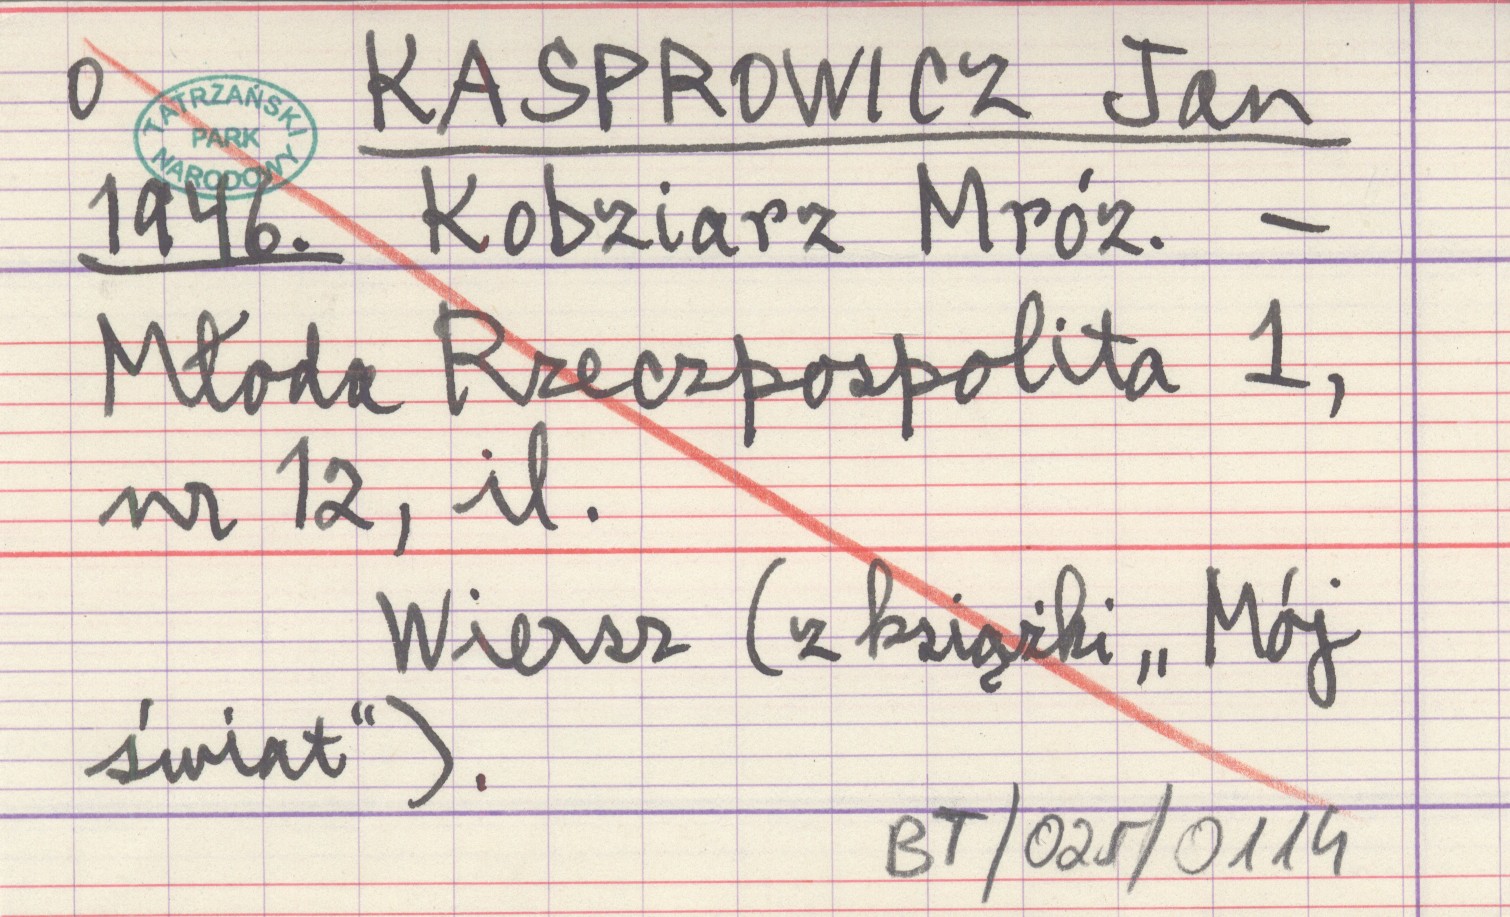 O KASPROWICZ Jan
TATRZAŃSKI
PARK
NARODOWY
1946. Kobziarz Mróz. –
Młoda Rzeczpospolita 1,
nr 12, il.
Wiersz (z książki „Mój
świat“).
BT/025/0114